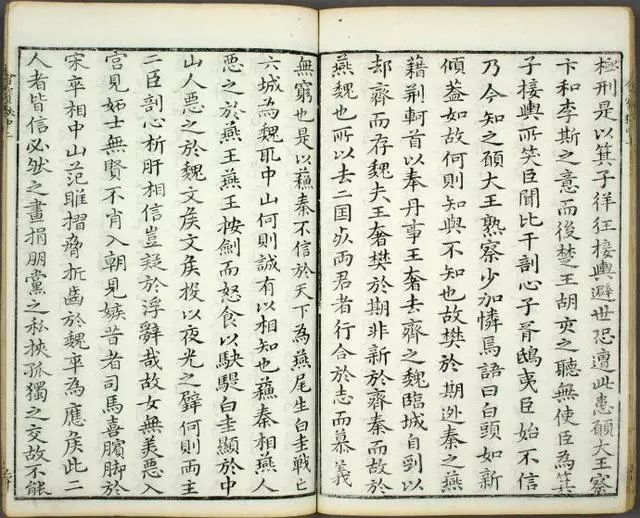 極刑是以箕子徉狂接輿避世恐遭此患願大王察
卞和李斯之意而後楚王胡亥之聽無使臣為箕
子接輿所笑臣聞比干剖心子胥鴟夷臣始不信
乃今知之願大王熟察少加憐焉語曰白頭如新
傾盖如故何則知與不知也故樊於期逃秦之燕
藉荆軻首以奉丹事王奢去齊之魏臨城自剄以
却齊而存魏夫王奢樊於期非新於齊秦而故於
燕魏也所以去二国死两君者行合於志而慕義
無窮也是以蘇秦不信於天下為燕尾生白圭戰亡
六城為魏取中山何則誠有以相知也蘇秦相燕人
惡之於燕王燕王按劍而怒食以駃騠白圭顯於中
山人惡之於魏文侯文侯投以夜光之璧何則两主
二臣剖心析肝相信豈疑於浮辭哉故女無美惡入
宮見妬士無賢不肖入朝見嫉昔者司馬喜臏脚於
宋卒相中山范雎摺脅折齒於魏卒為應侯此二
人者皆信必然之畫捐朋黨之私挾孤獨之交故不能